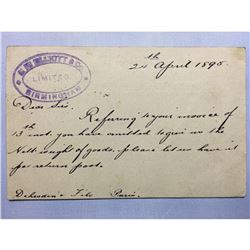 ELLIOTT & Co
LIMITED
BIRMINGHAM
24th April 1895
Dear Sirs
Referring to your invoice of
13th inst. you have omitted to give us the
Nett weight of goods. please let us have it
per return post.
Fils Paris